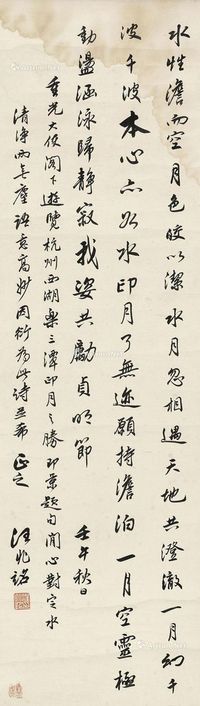 水性澹而空月色皎以潔水月忽相遇天地共澄澈一月幻千
波千波本心亦如水印月了無迹願持澹泊一月空靈極
動盪涵泳歸靜寂我姿共勵貞明節　壬午秋日
重光大使閣下遊覽杭州西湖樂三潭印月之勝即景題句閒心對定水
清淨兩無塵語意高妙因衍為此詩並希　正之
汪兆銘